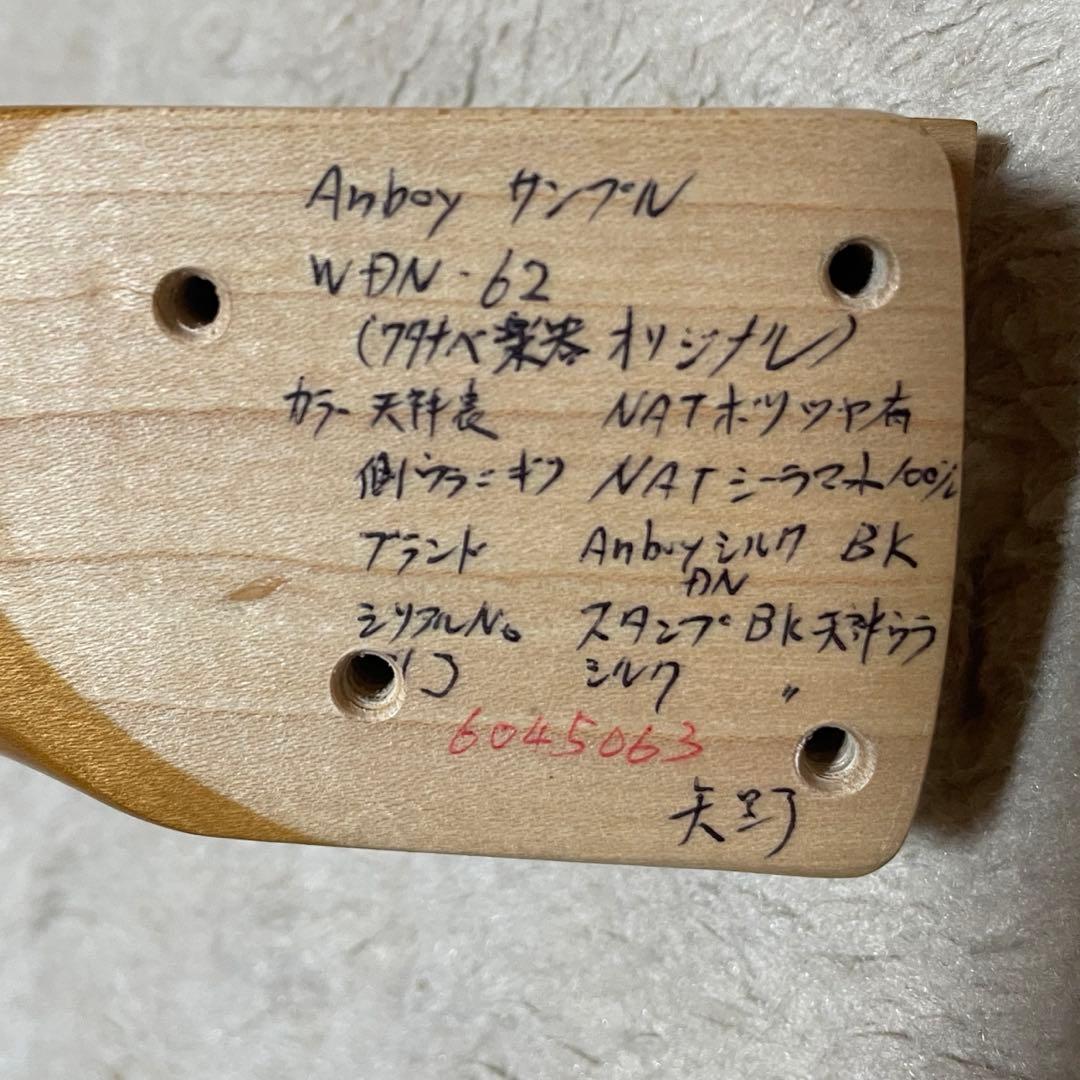 Anboy サンプル
WDN-62
(ワタナベ楽器 オリジナル)
カラー 天神表 NATポリツヤ有
側ウラニギリ NATシーラマネ100%
ブランド Anboyシルク BK
DN
シリアルNo スタンプ BK 天神ウラ
シルク 〃
6045063
矢野